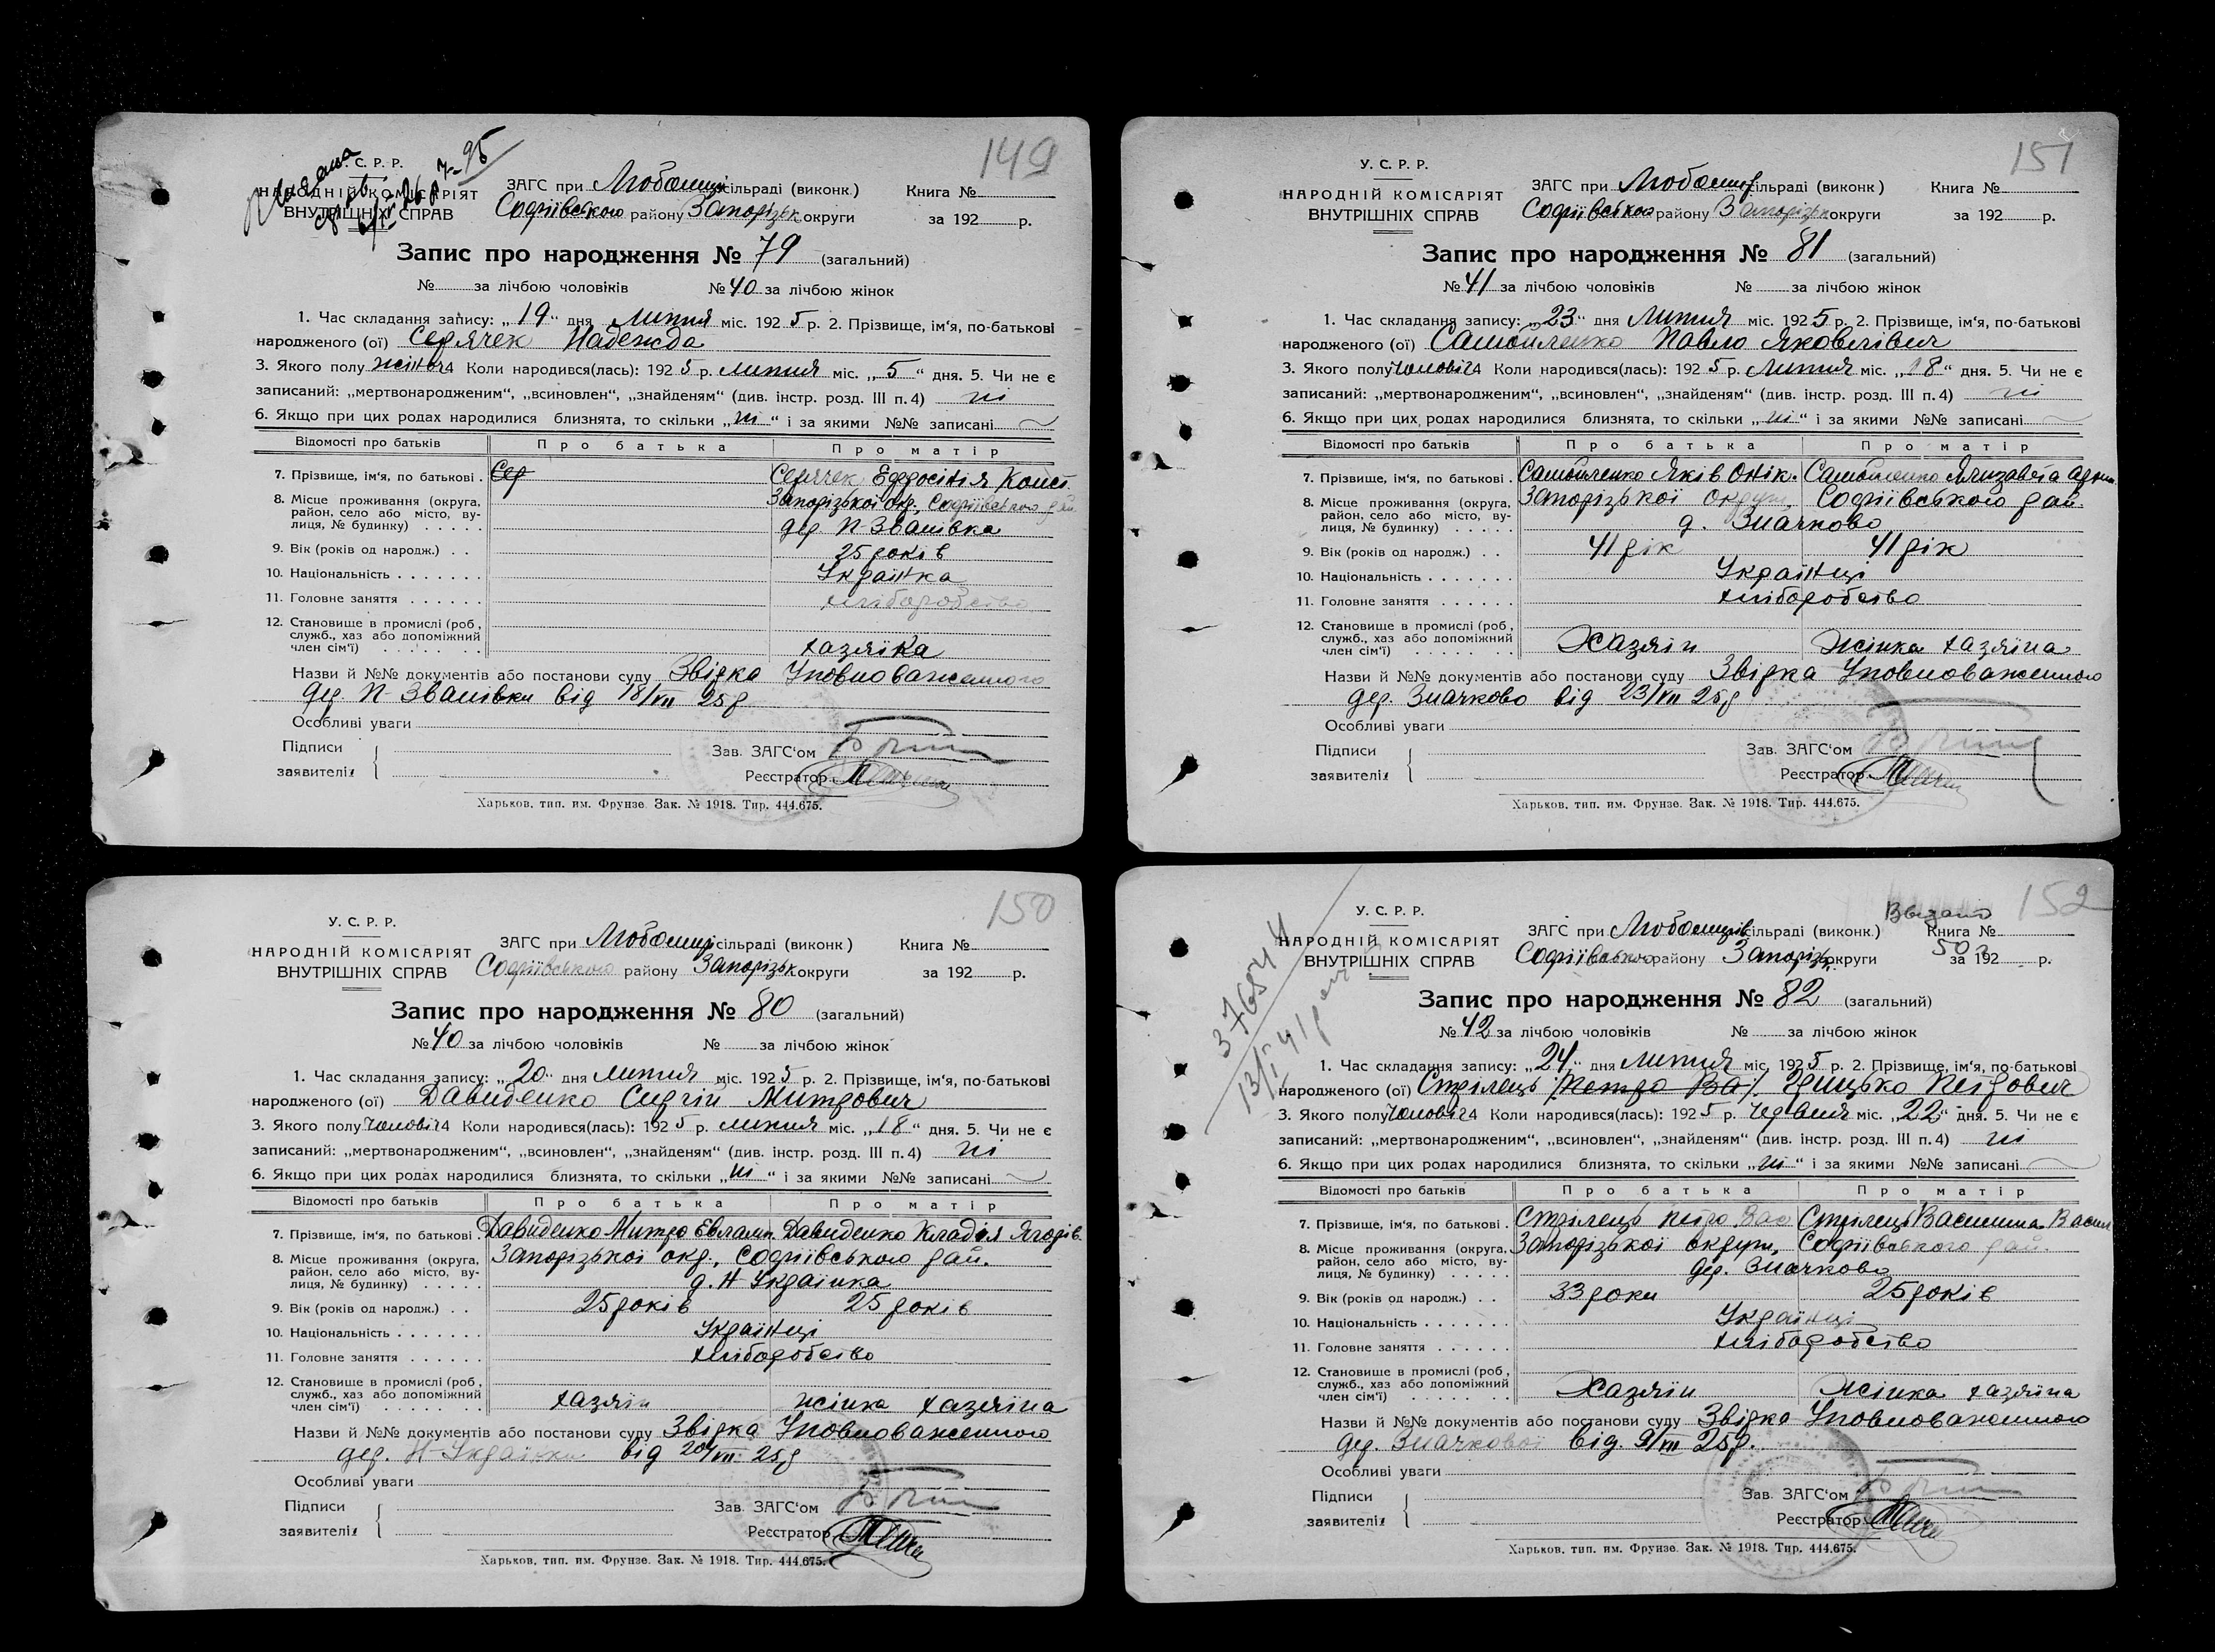 149
У. С. Р. Р.
НАРОДНІЙ КОМІСАРІЯТ
ВНУТРІШНІХ СПРАВ
ЗАГС при Любоми сільраді (виконк.) Книга №
Софіївського району Запорізьк округи за 192 р.
Запис про народження № 79 (загальний)
№ за лічбою чоловіків № 40 за лічбою жінок
1. Час складання запису: „19“ дня липня міс. 1925 р. 2. Прізвище, ім‘я, по-батькові
народженого (ої) Сердчек Надежда
3. Якого полу жіноч 4 Коли народився(лась): 1925 р. липня міс. „5“ дня. 5. Чи не є
записаний: „мертвонародженим“, „всиновлен“, „знайденям“ (див. інстр. розд. III п. 4) ні
6. Якщо при цих родах народилися близнята, то скільки „ні“ і за якими №№ записані
Відомості про батьків Про батька Про матір
7. Прізвище, ім‘я, по батькові . Сер Сердчек Ефросінія Конст.
8. Місце проживання (округа, Запорізької окр., Софіївського рай.
район, село або місто, ву-
лиця, № будинку) . . . . . дер П-Званівка
9. Вік (років од народж.) . . 25 років
10. Національність . . . . . . . Українка
11. Головне заняття . . . . . . хліборобство
12. Становище в промислі (роб.,
служб., хаз або допоміжний
член сім‘ї) . . . . . . . хазяїка
Назви й №№ документів або постанови суду Звідка Уповноваженного
дер. П Званівки від 18/VII 25 р
Особливі уваги
Підписи Зав. ЗАГС‘ом
заявителів Реєстратор
Харьков, тип. им. Фрунзе. Зак. № 1918. Тир. 444.675.
151
У. С. Р. Р.
НАРОДНІЙ КОМІСАРІЯТ
ВНУТРІШНІХ СПРАВ
ЗАГС при Любоми сільраді (виконк) Книга №
Софіївського району Запорізьк округи за 192 р.
Запис про народження № 81 (загальний)
№ 41 за лічбою чоловіків № за лічбою жінок
1. Час складання запису: „23“ дня Липня міс. 1925 р. 2. Прізвище, ім‘я, по-батькові
народженого (ої) Самойленко Павло Яковлівич
3. Якого полу чоловіч 4 Коли народився(лась): 1925 р. Липня міс. „18“ дня. 5. Чи не є
записаний: „мертвонародженим“, „всиновлен“, „знайденям“ (див. інстр. розд. III п. 4) ні
6. Якщо при цих родах народилися близнята, то скільки „ні“ і за якими №№ записані
Відомості про батьків Про батька Про матір
7. Прізвище, ім‘я, по батькові . Самойленко Яків Онік. Самойленко Ялизавета
8. Місце проживання (округа, Запорізької округи, Софіївського рай.
район, село або місто, ву-
лиця, № будинку) . . . . . д. Значково
9. Вік (років од народж.) . . 41 рік 41 рік
10. Національність . . . . . . . Українці
11. Головне заняття . . . . . . хліборобство
12. Становище в промислі (роб.,
служб., хаз або допоміжний
член сім‘ї) . . . . . . . Хазяїн Жінка хазяїна
Назви й №№ документів або постанови суду Звідка Уповноваженного
дер. Значково від 23/VII 25 р
Особливі уваги
Підписи Зав. ЗАГС‘ом
заявителів Реєстратор
Харьков, тип. им. Фрунзе. Зак. № 1918. Тир. 444.675.
150
У. С. Р. Р.
НАРОДНІЙ КОМІСАРІЯТ
ВНУТРІШНІХ СПРАВ
ЗАГС при Любоми сільраді (виконк) Книга №
Софіївського району Запорізьк округи за 192 р.
Запис про народження № 80 (загальний)
№ 40 за лічбою чоловіків № за лічбою жінок
1. Час складання запису: „20“ дня липня міс. 1925 р. 2. Прізвище, ім‘я, по-батькові
народженого (ої) Давиденко Сиргій Митрович
3. Якого полу чоловіч 4 Коли народився(лась): 1925 р. липня міс. „18“ дня. 5. Чи не є
записаний: „мертвонародженим“, „всиновлен“, „знайденям“ (див. інстр. розд. III п. 4) ні
6. Якщо при цих родах народилися близнята, то скільки „ні“ і за якими №№ записані
Відомості про батьків Про батька Про матір
7. Прізвище, ім‘я, по батькові Давиденко Митро Евлами. Давиденко Кладія
8. Місце проживання (округа, Запорізької окр., Софіївського рай.
район, село або місто, ву-
лиця, № будинку) . . . . . д. Н Українка
9. Вік (років од народж.) . . 25 років 25 років
10. Національність . . . . . . . Українці
11. Головне заняття . . . . . . хліборобство
12. Становище в промислі (роб.,
служб., хаз або допоміжний
член сім‘ї) . . . . . . . хазяїн жінка хазяїна
Назви й №№ документів або постанови суду Звідка Уповноваженного
дер. Н-Українки від 20/VII 25 р
Особливі уваги
Підписи Зав. ЗАГС‘ом
заявителів Реєстратор
Харьков, тип. им. Фрунзе. Зак. № 1918. Тир. 444.675.
152
Выдано
376544
У. С. Р. Р.
НАРОДНІЙ КОМІСАРІЯТ
ВНУТРІШНІХ СПРАВ
ЗАГС при Любомирів сільраді (виконк.) Книга №
Софіївського району Запорізь. округи за 192 р.
Запис про народження № 82 (загальний)
№ 42 за лічбою чоловіків № за лічбою жінок
1. Час складання запису: „24“ дня Липня міс. 1925 р. 2. Прізвище, ім‘я, по-батькові
народженого (ої) Стрілець (Петро Ва). Грицько Петрович
3. Якого полу чоловіч 4 Коли народився(лась): 1925 р. Червня міс. „22“ дня. 5. Чи не є
записаний: „мертвонародженим“, „всиновлен“, „знайденям“ (див. інстр. розд. III п. 4) ні
6. Якщо при цих родах народилися близнята, то скільки „ні“ і за якими №№ записані
Відомості про батьків Про батька Про матір
7. Прізвище, ім‘я, по батькові . Стрілець Петро Вас Стрілець Василина Васил
8. Місце проживання (округа, Запорізької округи, Софіївського рай.
район, село або місто, ву-
лиця, № будинку) . . . . . дер. Значково
9. Вік (років од народж.) . . 33 роки 25 років
10. Національність . . . . . . . Українці
11. Головне заняття . . . . . . хліборобство
12. Становище в промислі (роб.,
служб., хаз або допоміжний
член сім‘ї) . . . . . . . Хазяїн Жінка хазяїна
Назви й №№ документів або постанови суду Звідка Уповноваженного
дер. Значкової від. 9/VII 25 р.
Особливі уваги
Підписи Зав. ЗАГС‘ом
заявителів Реєстратор
Харьков, тип. им. Фрунзе. Зак. № 1918. Тир. 444.675.